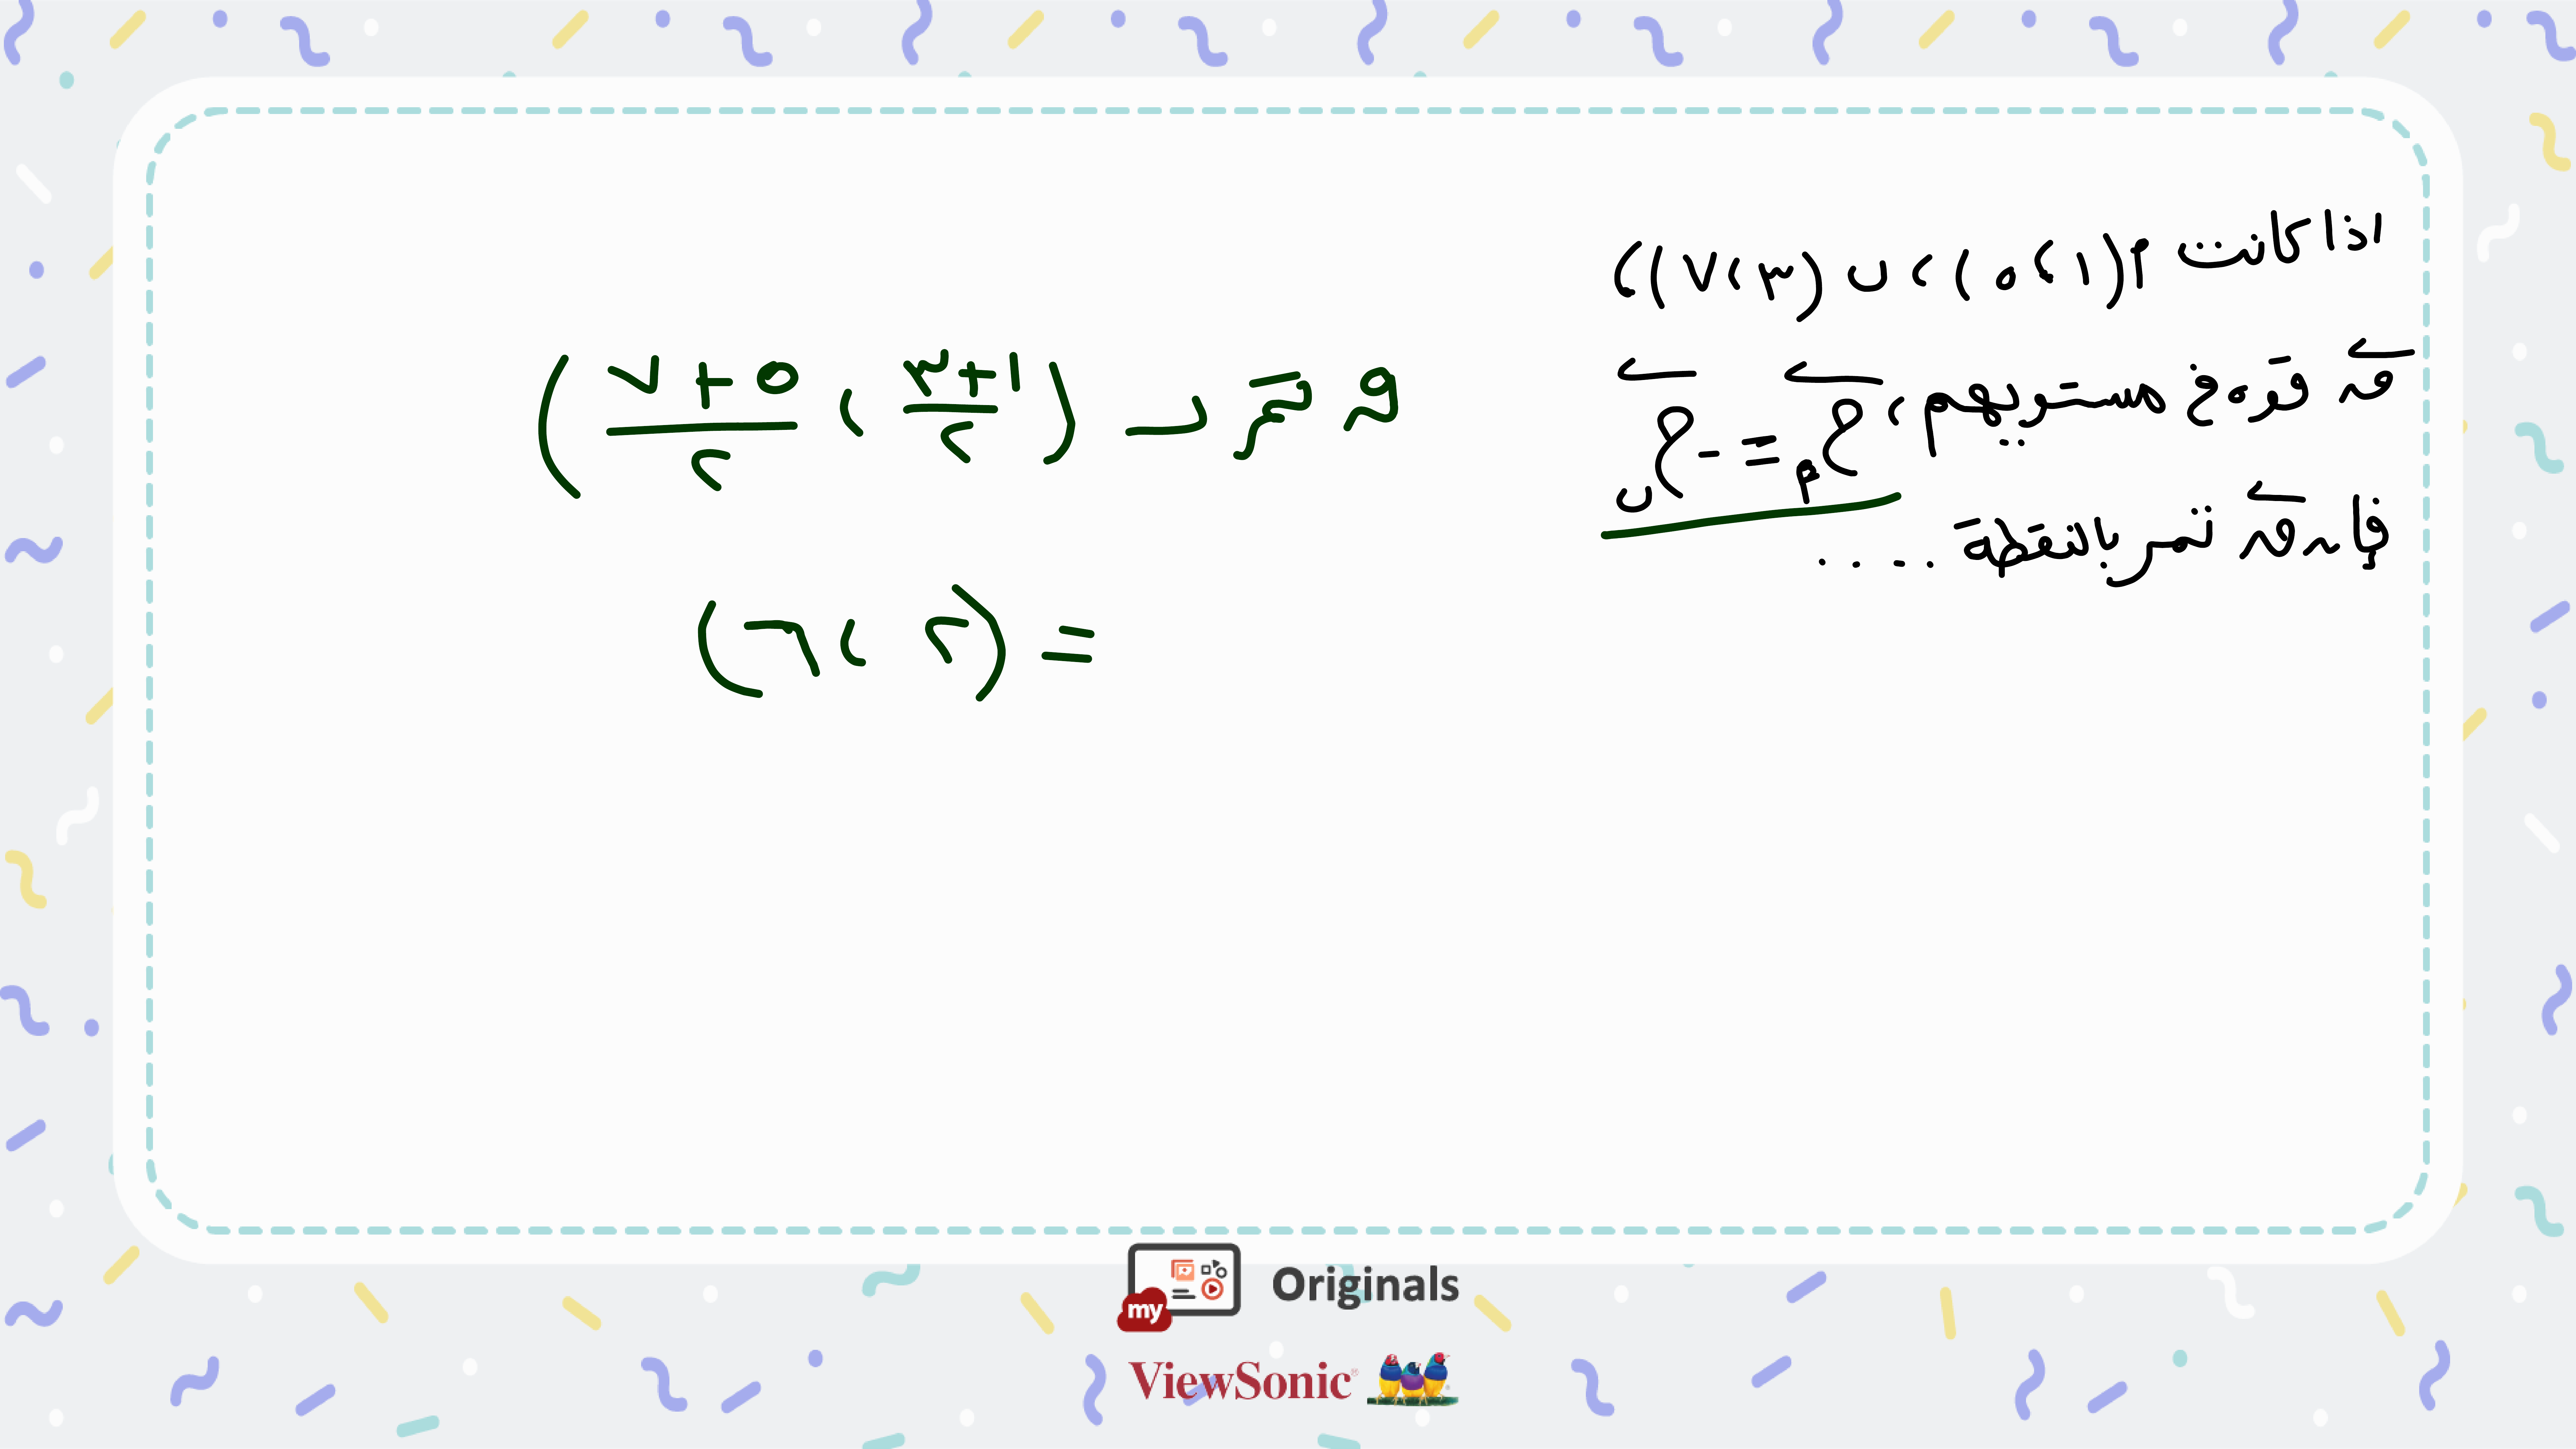 اذا كانت م(١، ٥)، ب(٣، ٧)،
ق قوة في مستويهم، ج م = - ج ب
فإن ق تمر بالنقطة ....
ق تمر بـ (١+٣/٢ ، ٥+٧/٢)
= (٢، ٦)
my Originals
ViewSonic